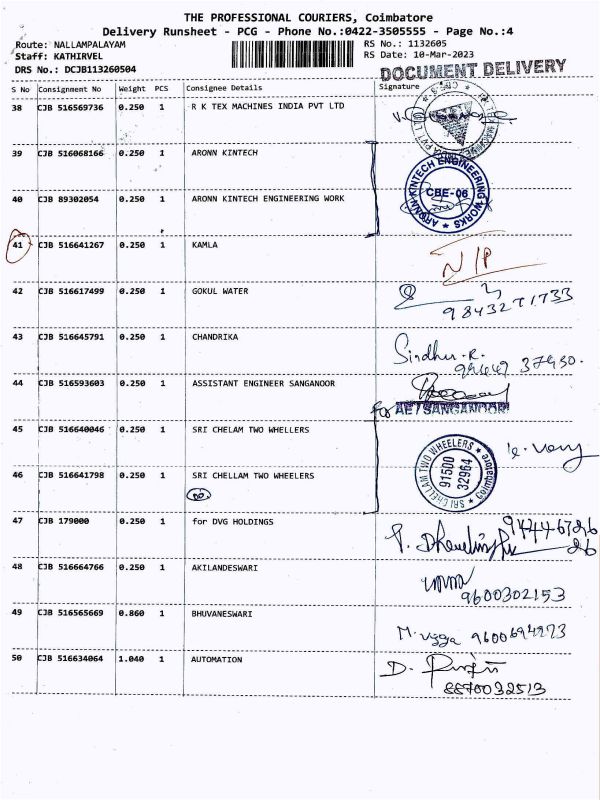 THE PROFESSIONAL COURIERS, Coimbatore
Delivery Runsheet - PCG - Phone No.:0422-3505555 - Page No.:4
Route: NALLAMPALAYAM RS No.: 1132605
Staff: KATHIRVEL RS Date: 10-Mar-2023
DRS No.: DCJB113260504 DOCUMENT DELIVERY
S No Consignment No Weight PCS Consignee Details Signature
38 CJB 516569736 0.250 1 R K TEX MACHINES INDIA PVT LTD
39 CJB 516068166 0.250 1 ARONN KINTECH
40 CJB 89302054 0.250 1 ARONN KINTECH ENGINEERING WORK
ARONN KINTECH ENGINEERING WORKS
CBE-06
41 CJB 516641267 0.250 1 KAMLA
N/P
42 CJB 516617499 0.250 1 GOKUL WATER
9843271733
43 CJB 516645791 0.250 1 CHANDRIKA
Sindhu.R.
44 CJB 516593603 0.250 1 ASSISTANT ENGINEER SANGANOOR
for AE/SANGANOOR
45 CJB 516640046 0.250 1 SRI CHELAM TWO WHELLERS
46 CJB 516641798 0.250 1 SRI CHELLAM TWO WHEELERS
SRI CHELLAM TWO WHEELERS
91500
32964
Coimbatore
47 CJB 179000 0.250 1 for DVG HOLDINGS
48 CJB 516664766 0.250 1 AKILANDESWARI
9600302153
49 CJB 516565669 0.860 1 BHUVANESWARI
50 CJB 516634064 1.040 1 AUTOMATION
8870032513